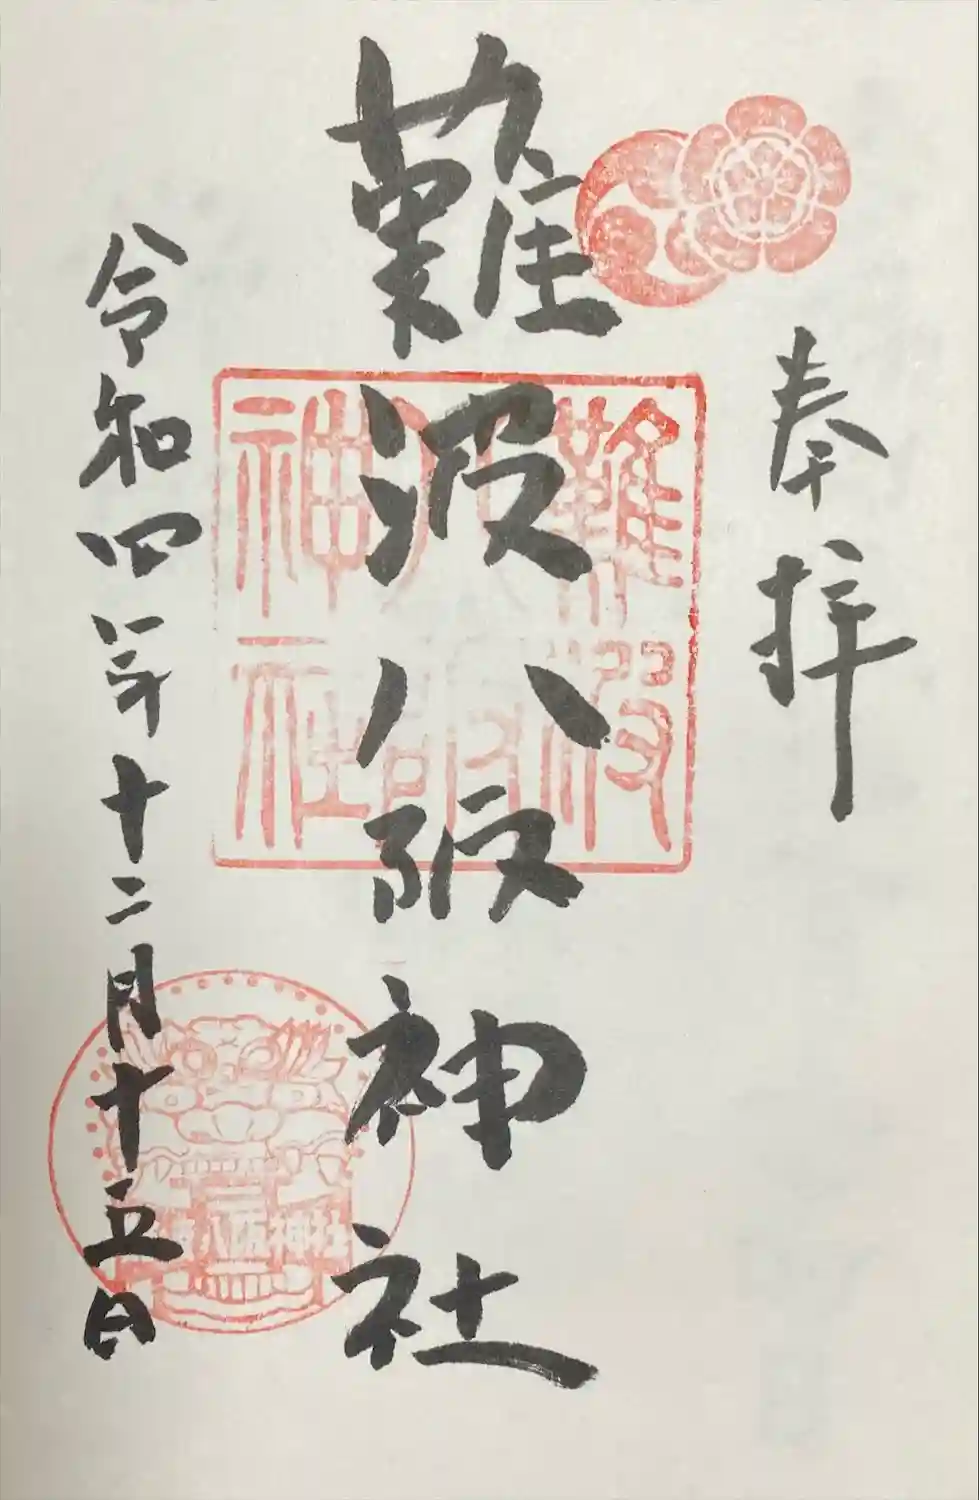 奉拝
難波八阪神社
令和四年十二月十五日
難波
八阪
神社
難波八阪神社